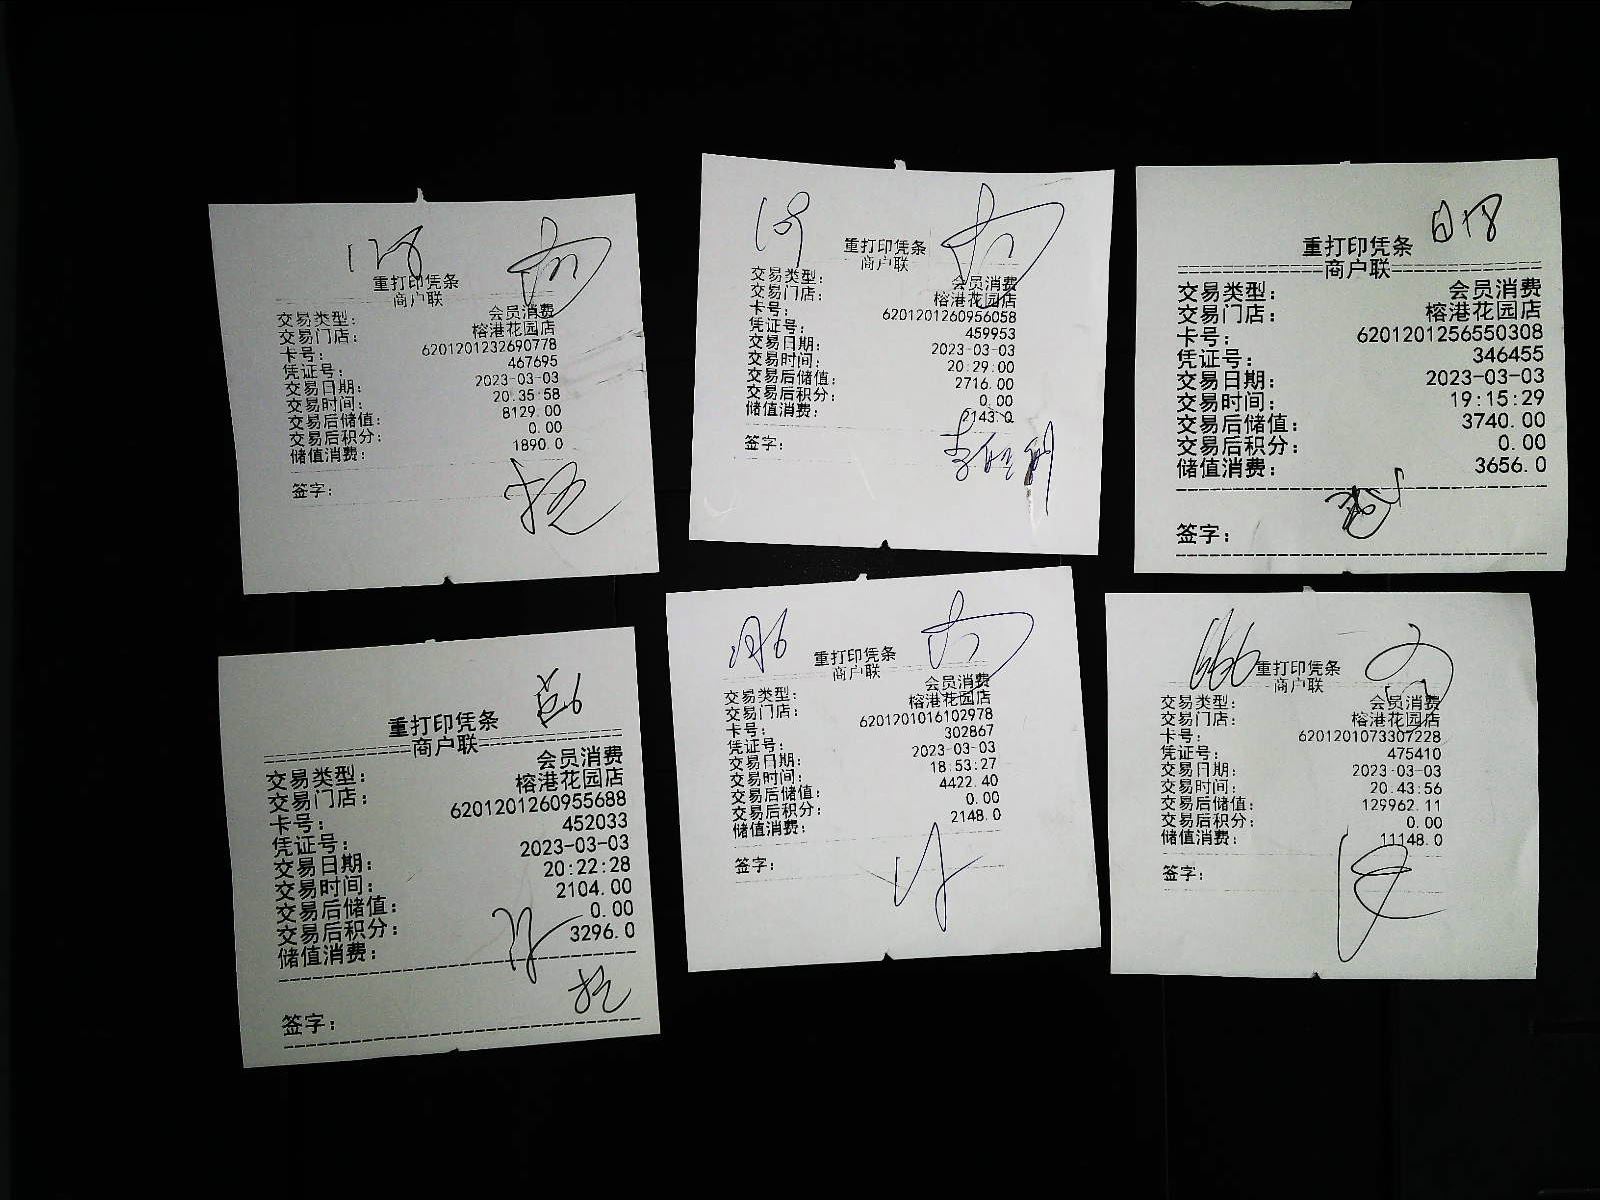 128
重打印凭条
商户联
交易类型： 会员消费
交易门店： 榕港花园店
卡号： 6201201232690778
凭证号： 467695
交易日期： 2023-03-03
交易时间： 20:35:58
交易后储值： 8129.00
交易后积分： 0.00
储值消费： 1890.0
签字：
重打印凭条
商户联
交易类型： 会员消费
交易门店： 榕港花园店
卡号： 6201201260956058
凭证号： 459953
交易日期： 2023-03-03
交易时间： 20:29:00
交易后储值： 2716.00
交易后积分： 0.00
储值消费： 2143.0
签字：
重打印凭条
商户联
交易类型： 会员消费
交易门店： 榕港花园店
卡号： 6201201256550308
凭证号： 346455
交易日期： 2023-03-03
交易时间： 19:15:29
交易后储值： 3740.00
交易后积分： 0.00
储值消费： 3656.0
签字：
重打印凭条
商户联
交易类型： 会员消费
交易门店： 榕港花园店
卡号： 6201201260955688
凭证号： 452033
交易日期： 2023-03-03
交易时间： 20:22:28
交易后储值： 2104.00
交易后积分： 0.00
储值消费： 3296.0
签字：
重打印凭条
商户联
交易类型： 会员消费
交易门店： 榕港花园店
卡号： 6201201016102978
凭证号： 302867
交易日期： 2023-03-03
交易时间： 18:53:27
交易后储值： 4422.40
交易后积分： 0.00
储值消费： 2148.0
签字：
666
重打印凭条
商户联
交易类型： 会员消费
交易门店： 榕港花园店
卡号： 6201201073307228
凭证号： 475410
交易日期： 2023-03-03
交易时间： 20:43:56
交易后储值： 129962.11
交易后积分： 0.00
储值消费： 11148.0
签字：